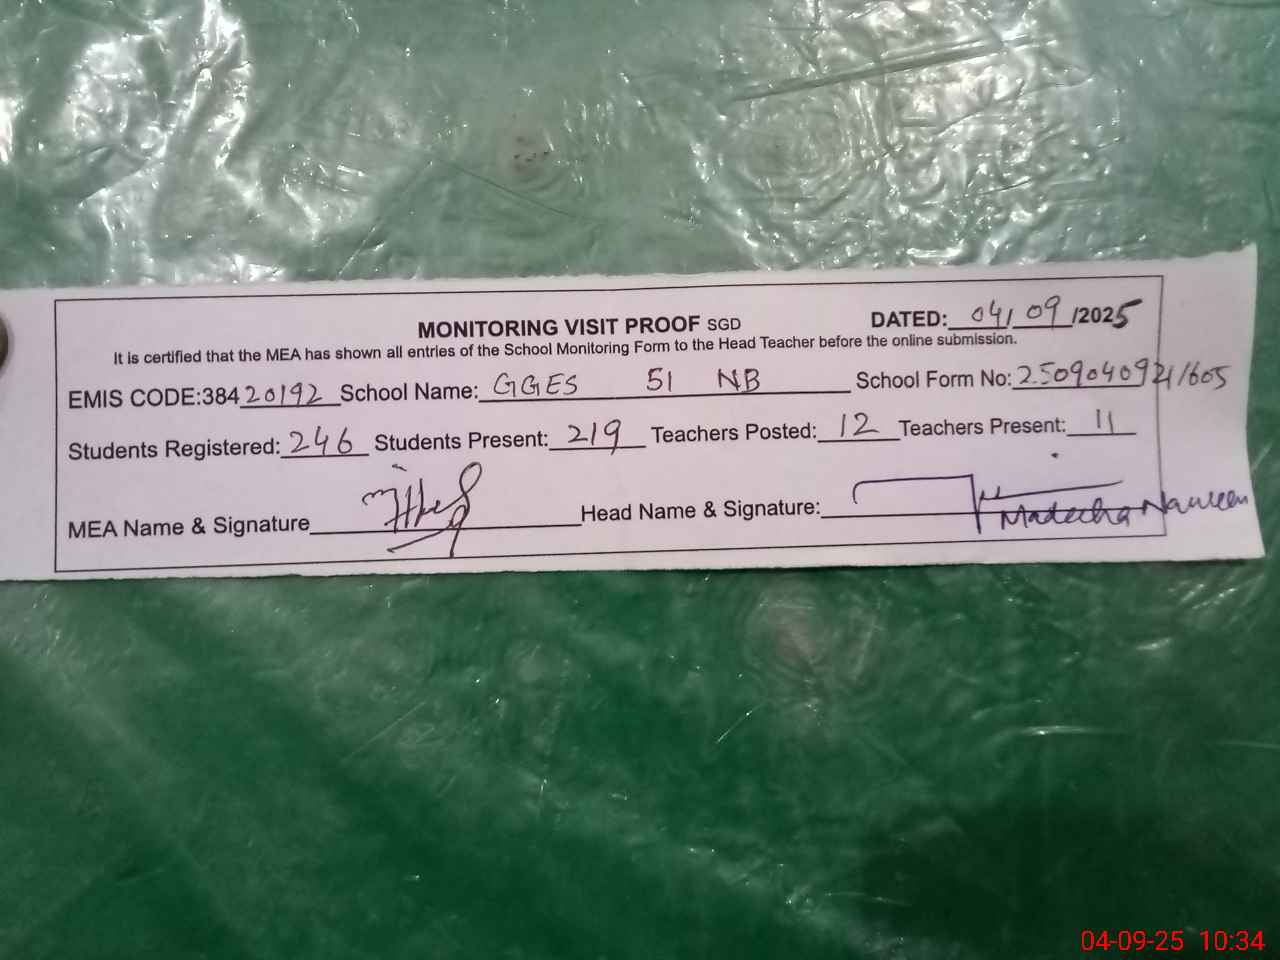 MONITORING VISIT PROOF SGD DATED: 04/09/2025
It is certified that the MEA has shown all entries of the School Monitoring Form to the Head Teacher before the online submission.
EMIS CODE:38420192 School Name: GGES 51 NB School Form No: 25090409211605
Students Registered: 246 Students Present: 219 Teachers Posted: 12 Teachers Present: 11
MEA Name & Signature Head Name & Signature: Madeeha Naureen
04-09-25 10:34